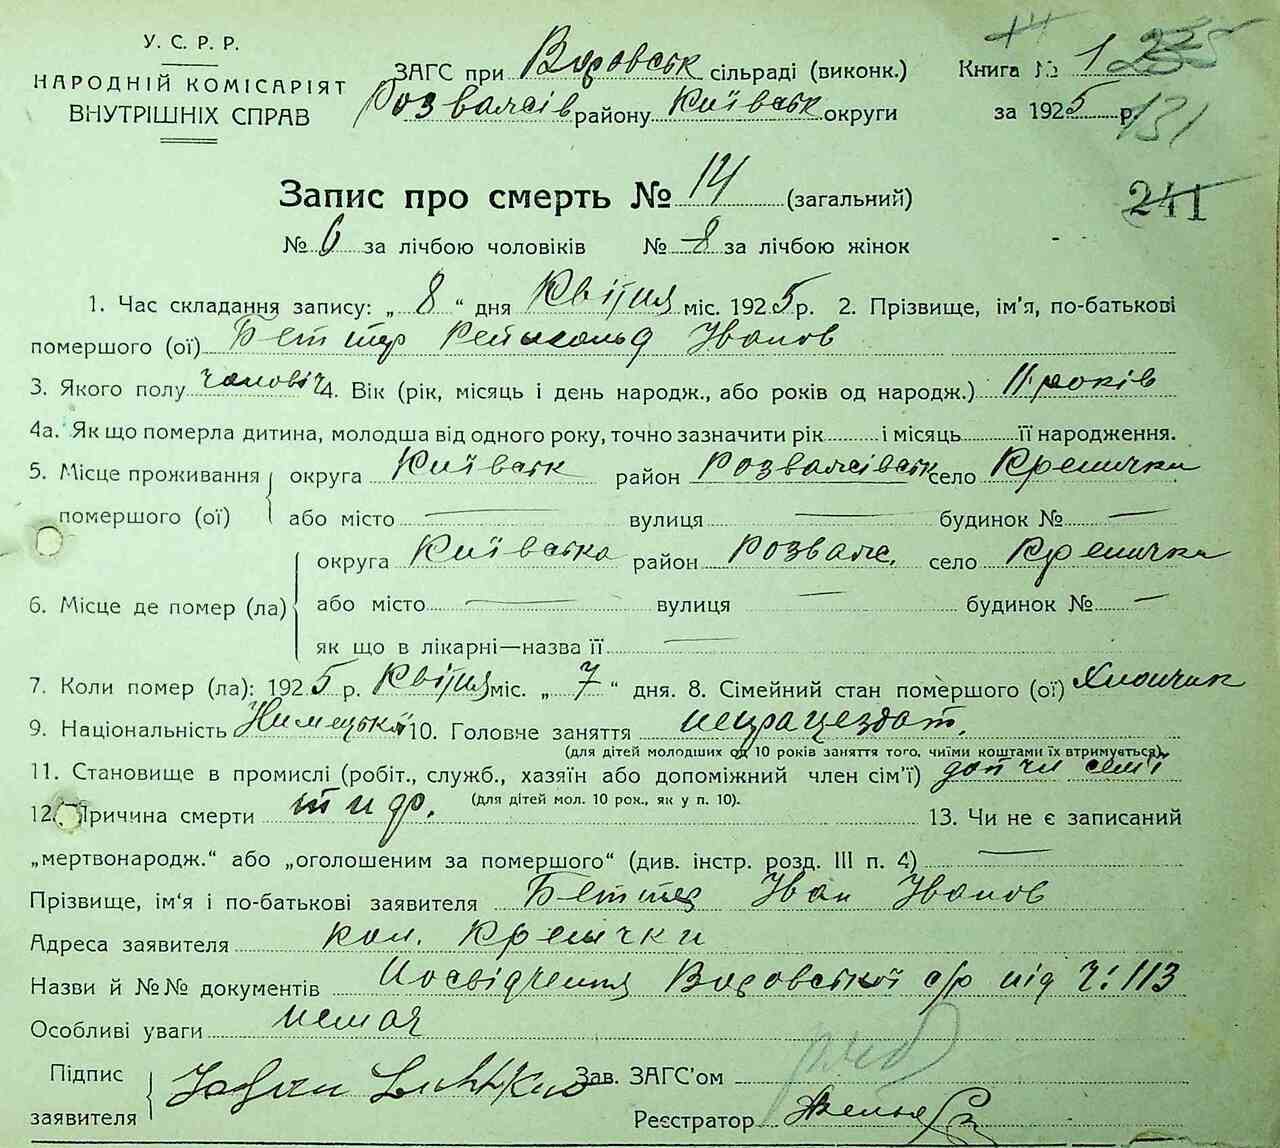 У. С. Р. Р.
НАРОДНІЙ КОМІСАРІЯТ
ВНУТРІШНІХ СПРАВ
ЗАГС при сільраді (виконк.)
району Київськ округи
Книга № 1
за 1925 р.
131
241
Запис про смерть № 14 (загальний)
№ 6 за лічбою чоловіків № 8 за лічбою жінок
1. Час складання запису: „ 8 “ дня Квітня міс. 1925 р. 2. Прізвище, ім’я, по-батькові
помершого (ої) Іванов
3. Якого полу чоловіч 4. Вік (рік, місяць і день народж., або років од народж.) 11 років
4а. Як що померла дитина, молодша від одного року, точно зазначити рік і місяць її народження.
5. Місце проживання помершого (ої) округа Київськ район Розважівськ село
або місто — вулиця — будинок № —
6. Місце де помер (ла) округа Київська район Розваж. село
або місто — вулиця — будинок № —
як що в лікарні—назва її —
7. Коли помер (ла): 1925 р. Квітня міс. „ 7 “ дня. 8. Сімейний стан помершого (ої) Хлопчик
9. Національність 10. Головне заняття непрацездат.
(для дітей молодших од 10 років заняття того, чиїми коштами їх втримується).
11. Становище в промислі (робіт., служб., хазяїн або допоміжний член сім’ї) доп чл сем’ї
(для дітей мол. 10 рок., як у п. 10).
12. Причина смерти тиф. 13. Чи не є записаний
„мертвонародж.“ або „оголошеним за помершого“ (див. інстр. розд. III п. 4) —
Прізвище, ім‘я і по-батькові заявителя Іван Іванов
Адреса заявителя кол.
Назви й №№ документів Посвідчення с/р під ч: 113
Особливі уваги немає
Підпис заявителя
Зав. ЗАГС’ом
Реєстратор